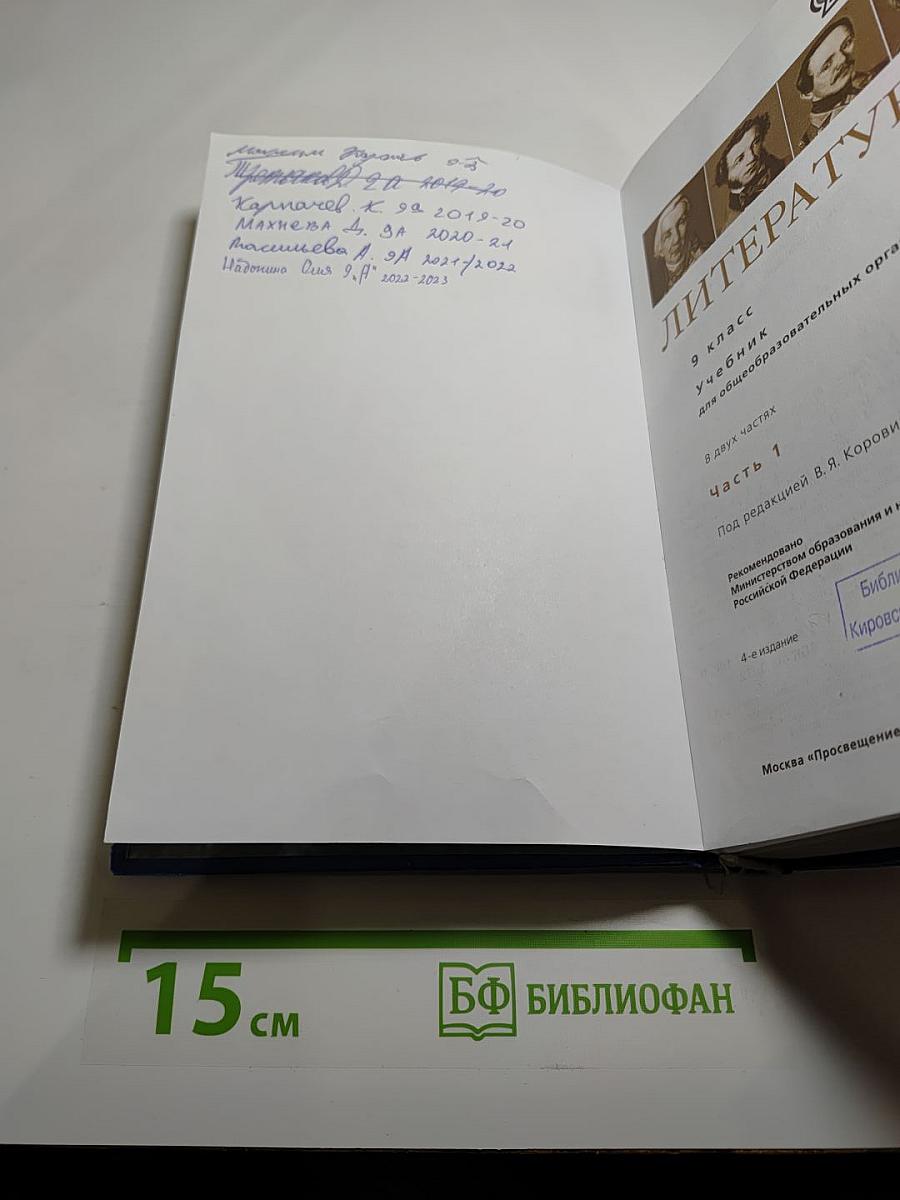 9-
9А 2019-20
Карпачев. К. 9а 2019-20
Махнева Д. 9А 2020-21
А. 9А 2021/2022
Юлия 9 „А" 2022-2023
ЛИТЕРАТУР
9 класс
Учебник
для общеобразовательных орга
В двух частях
Часть 1
Под редакцией В. Я. Корови
Рекомендовано
Министерством образования и н
Российской Федерации
Библи
Кировс
4-е издание
Москва «Просвещение
15 см
БФ БИБЛИОФАН